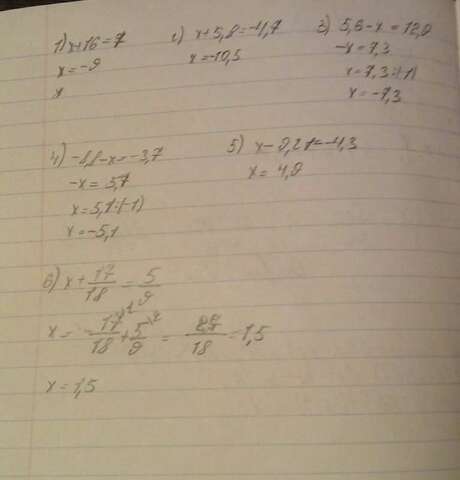 1) x+16=7
x=-9
x
2) x+5,8=-4,7
x=-10,5
3) 5,6-x=12,9
-x=7,3
x=7,3:(-1)
x=-7,3
4) -8,8-x=-3,7
-x=5,1
x=5,1:(-1)
x=-5,1
5) x-9,2=-4,3
x=4,9
6) x+17/18=5/9
x=-17/18+5/9=27/18=1,5
x=1,5